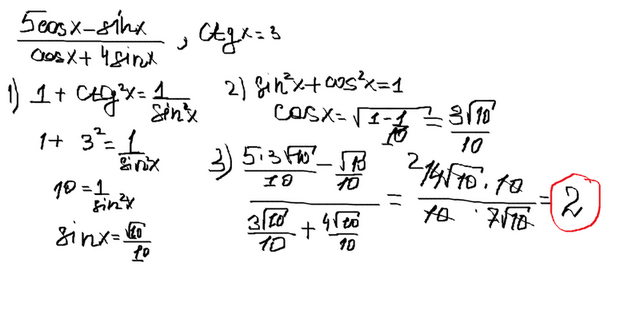 (5cosx-sinx)/(cosx+4sinx), ctgx=3
1) 1+ctg²x=1/sin²x
1+3²=1/sin²x
10=1/sin²x
sinx=√10/10
2) sin²x+cos²x=1
cosx=√(1-1/10)=3√10/10
3) (5·3√10/10-√10/10)/(3√10/10+4√10/10)=(2 14√10·10)/(10·7√10)=2